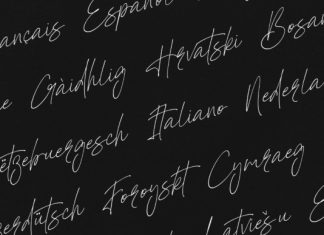 ançais Español
Gàidhlig Hrvatski Bosan
ëtzebuergesch Italiano Nederla
zerdütsch Foroyskt Cymraeg
Latviešu E